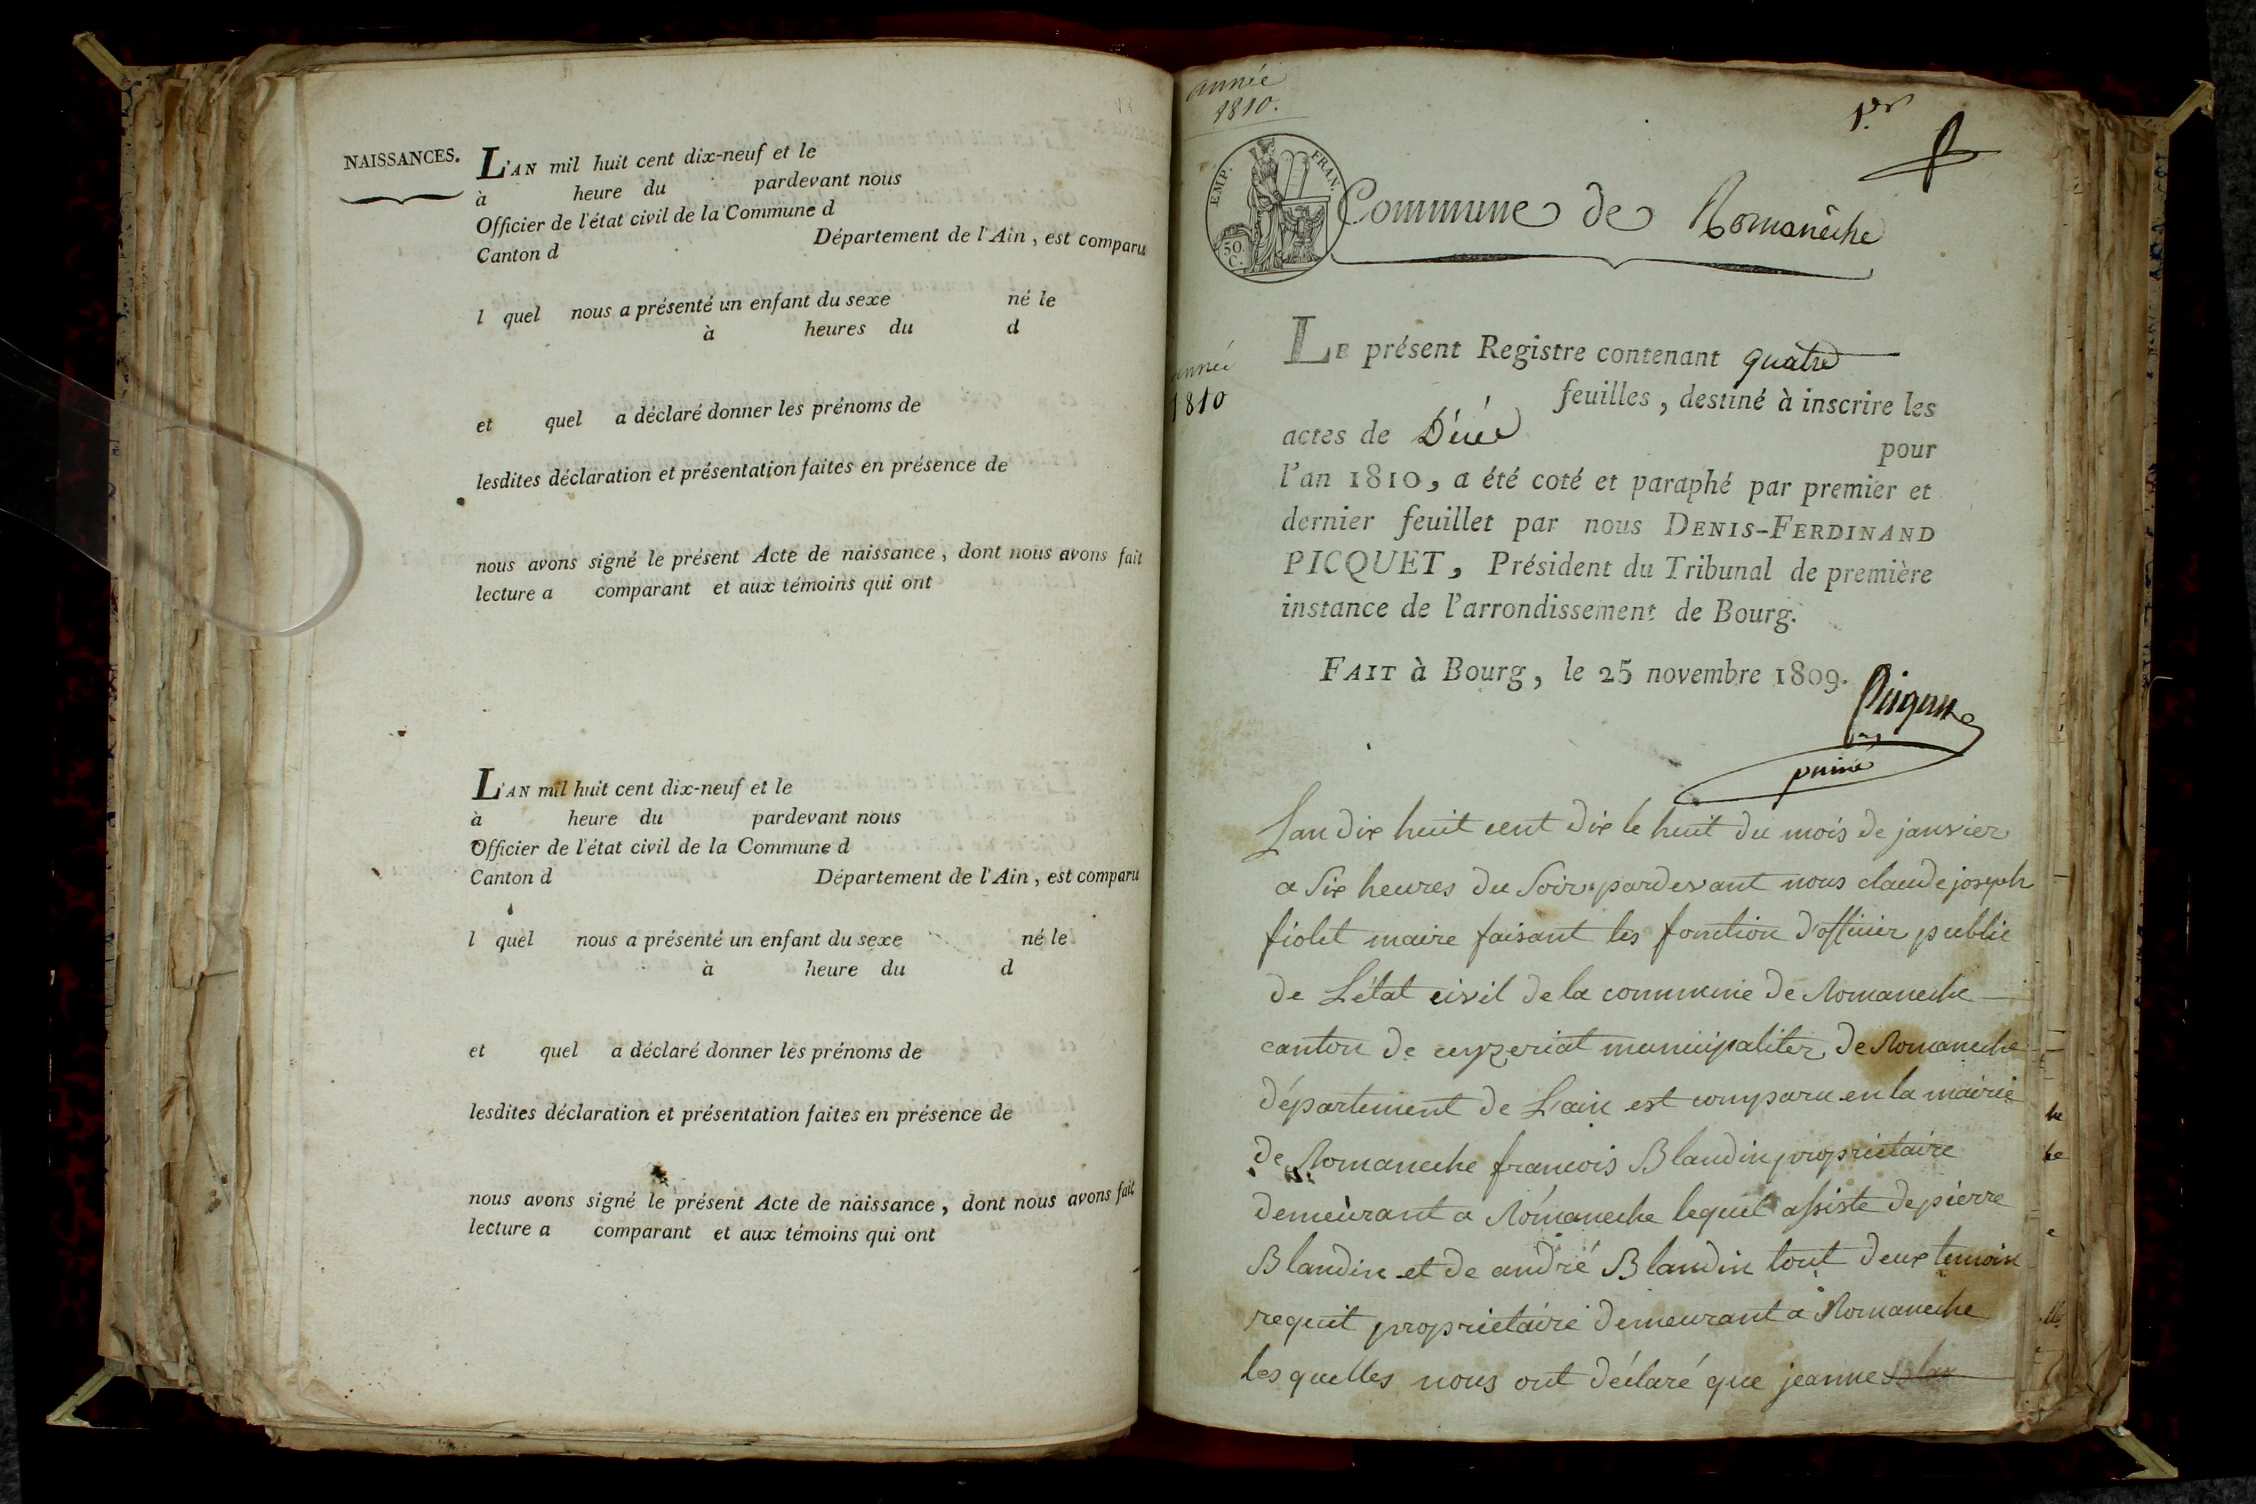 NAISSANCES.
L'AN mil huit cent dix-neuf et le
à heure du pardevant nous
Officier de l'état civil de la Commune d
Canton d Département de l'Ain, est comparu
l quel nous a présenté un enfant du sexe né le
à heures du d
et quel a déclaré donner les prénoms de
lesdites déclaration et présentation faites en présence de
nous avons signé le présent Acte de naissance, dont nous avons fait
lecture a comparant et aux témoins qui ont
L'AN mil huit cent dix-neuf et le
à heure du pardevant nous
Officier de l'état civil de la Commune d
Canton d Département de l'Ain, est comparu
l quel nous a présenté un enfant du sexe né le
à heure du d
et quel a déclaré donner les prénoms de
lesdites déclaration et présentation faites en présence de
nous avons signé le présent Acte de naissance, dont nous avons fait
lecture a comparant et aux témoins qui ont
année
1810.
1.er
EMP. FRAN.
50.
C.
Commune de Romanêche
LE présent Registre contenant quatre
année
1810
feuilles, destiné à inscrire les
actes de Décé pour
l'an 1810, a été coté et paraphé par premier et
dernier feuillet par nous DENIS-FERDINAND
PICQUET, Président du Tribunal de première
instance de l'arrondissement de Bourg.
FAIT à Bourg, le 25 novembre 1809.
Picquet
Lan dix huit cent dix le huit du mois de janvier
a Six heures du Soir pardevant nous claude joseph
fiolet maire faisant les fonction d'officier public
de L'état civil de la commune de Romaneche
canton de ceyzeriat municipaliter de Romaneche
département de L'ain est comparu en la mairie
de Romaneche francois Blandin proprietaire
demeurant a Romaneche lequel assiste de pierre
Blandin et de andré Blandin tout deux temoin
requit proprietaire demeurant a Romaneche
les quelles nous ont déclaré que jeanne